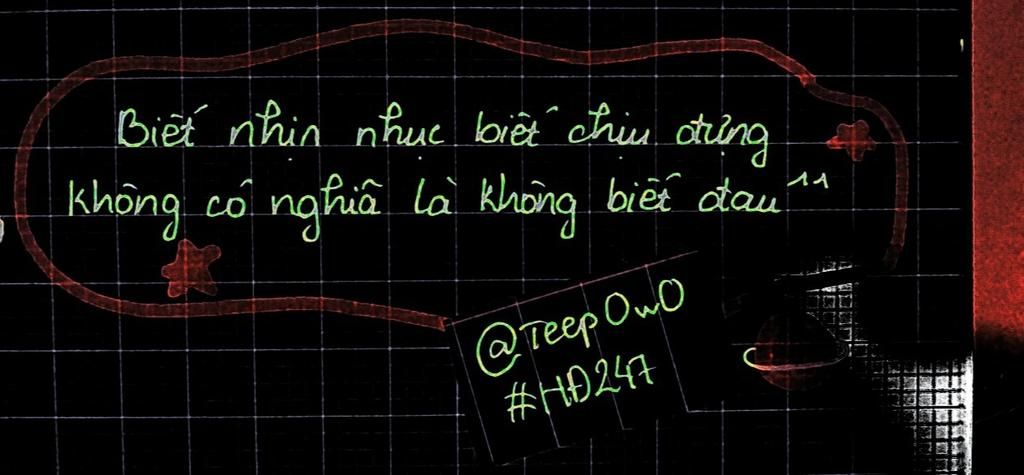 Biết nhịn nhục biết chịu đựng
không có nghĩa là không biết đau ^^
@TeepOwO
#HĐ247